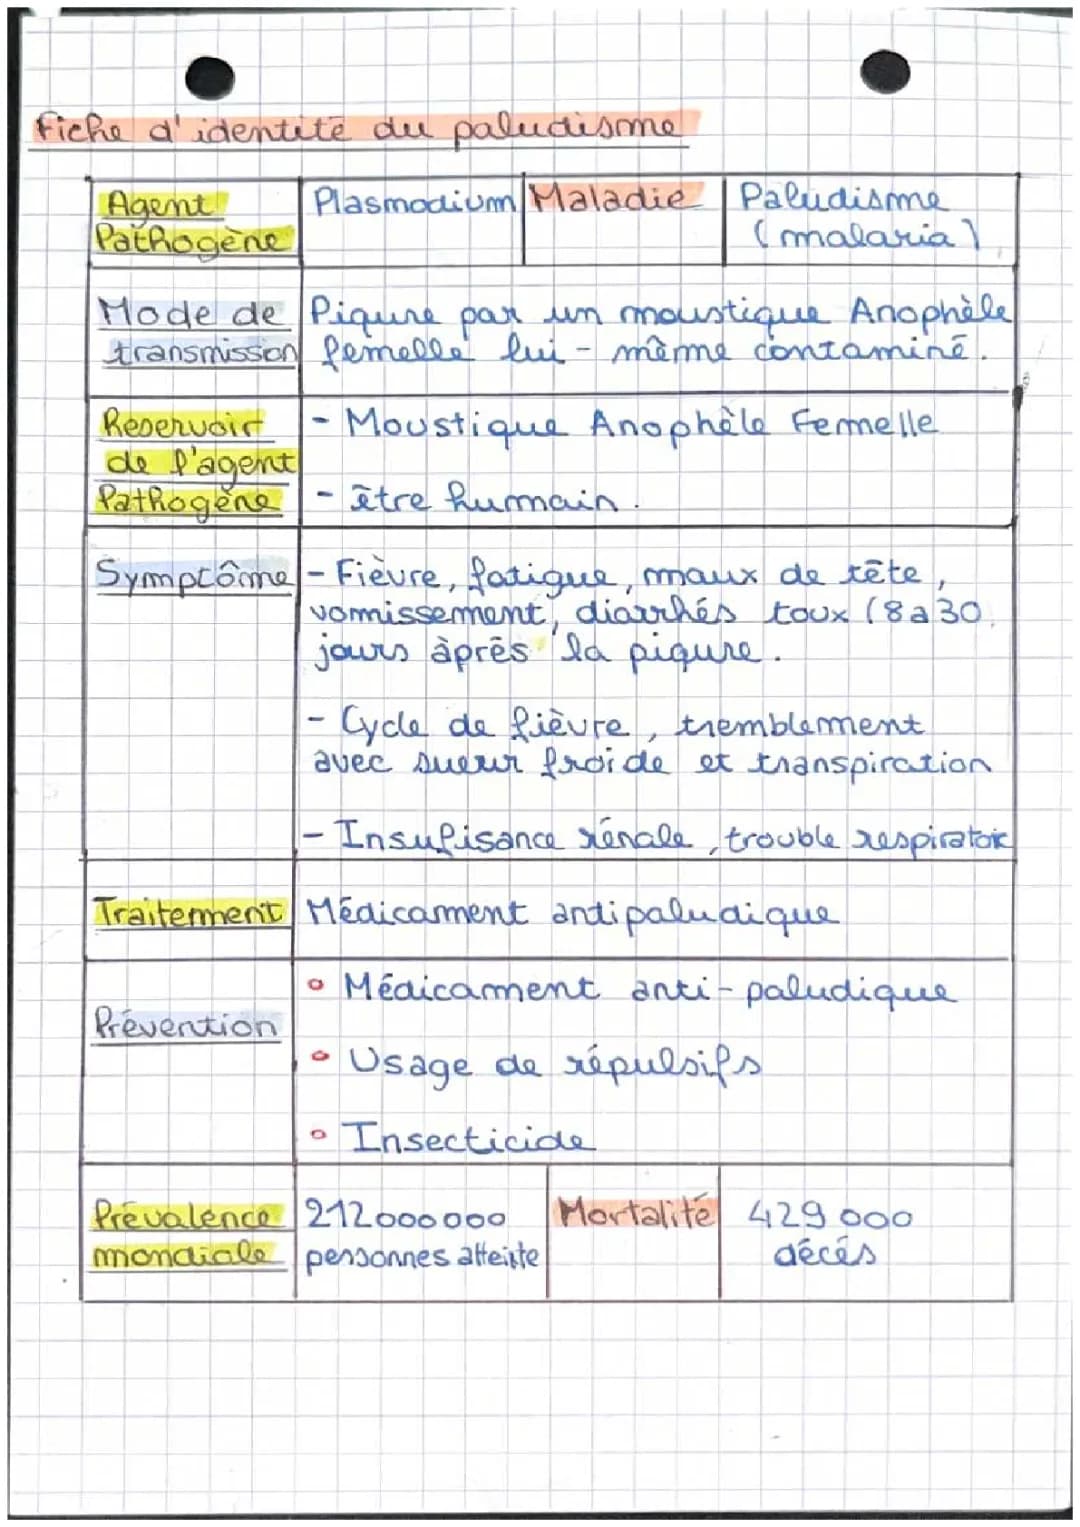 Fiche d'identité du paludisme
Agent Pathogène
Plasmodium
Maladie
Paludisme
(malaria)
Mode de transmission
Piqure par un moustique Anophèle
femelle lui-même contaminé.
Reservoir
de l'agent
Pathogène
- Moustique Anophèle Femelle
- être humain.
Symptôme
- Fièvre, fatigue, maux de tête,
vomissement, diarrhés toux (8 à 30
jours àprês la piqure.
- Cycle de fièvre, tremblement
avec sueur froide et transpiration
- Insufisance rénale, trouble respiratoire
Traitement
Médicament antipaludique
Prévention
Médicament anti-paludique
Usage de répulsifs
Insecticide
Prévalence
mondiale
212000000
personnes atteinte
Mortalité
429 000
décés